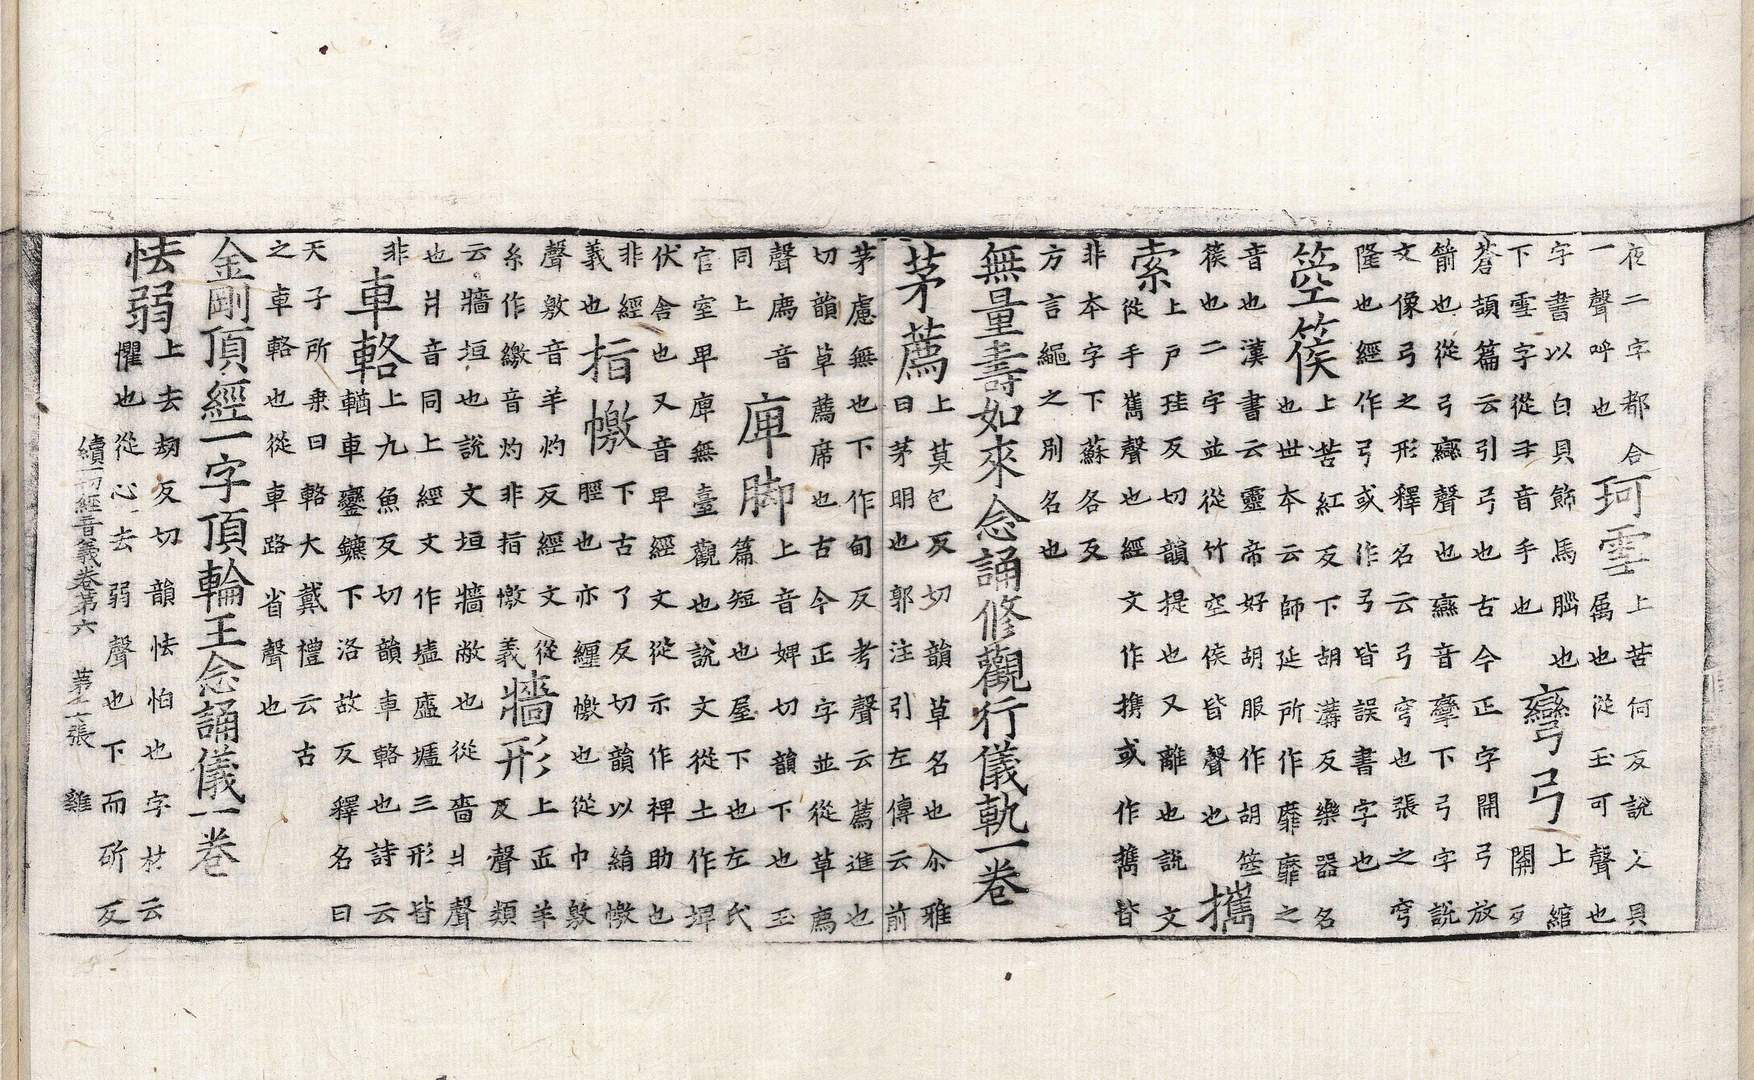 夜二字都合
一聲呼也
珂雪
上苦何反說文貝
屬也從玉可聲也
字書以白貝飾馬腦也
下雪字從彐音手也
彎弓
上綰
關反
蒼頡篇云引弓也古今正字開弓放
箭也從弓䜌聲也䜌音攣下弓字說
文像弓之形釋名云弓穹也張之穹
隆也經作弓或作弓皆誤書字也
箜篌
上苦紅反下胡溝反樂器名
也世本云師延所作靡靡之
音也漢書云靈帝好胡服作胡箜
篌也二字並從竹空侯皆聲也
攜
索
上戶珪反切韻提也又離也說文
從手巂聲也經文作携或作擕皆
非本字下蘇各反
方言繩之別名也
無量壽如來念誦修觀行儀軌一卷
茅薦
上莫包反切韻草名也尒雅
曰茅明也郭注引左傳云前
茅慮無也下作甸反考聲云薦進也
切韻草薦席也古今正字並從草廌
聲廌音
同上
庳脚
上音婢切韻下也玉
篇短也屋下也左氏
官室卑庳無臺觀也說文從土作埤
伏舍也又音卑經文從示作裨助也
非經
義也
指憿
下古了反切韻以絹憿
脛也亦纒憿也從巾敫
聲敫音羊灼反經文從
糸作繳音灼非指憿義
牆形
上匠羊
反聲類
云牆垣也說文垣牆敝也從嗇爿聲
也爿音同上經文作墟廬壚三形皆
非
車輅
上九魚反切韻車輅也詩云
輶車鸞鑣下洛故反釋名曰
天子所乗曰輅大戴禮云古
之車輅也從車路省聲也
金剛頂經一字頂輪王念誦儀一卷
怯弱
上去劫反切韻怯怕也字林云
懼也從心去弱聲也下而斫反
續一切經音義卷第六 第十一張 雞